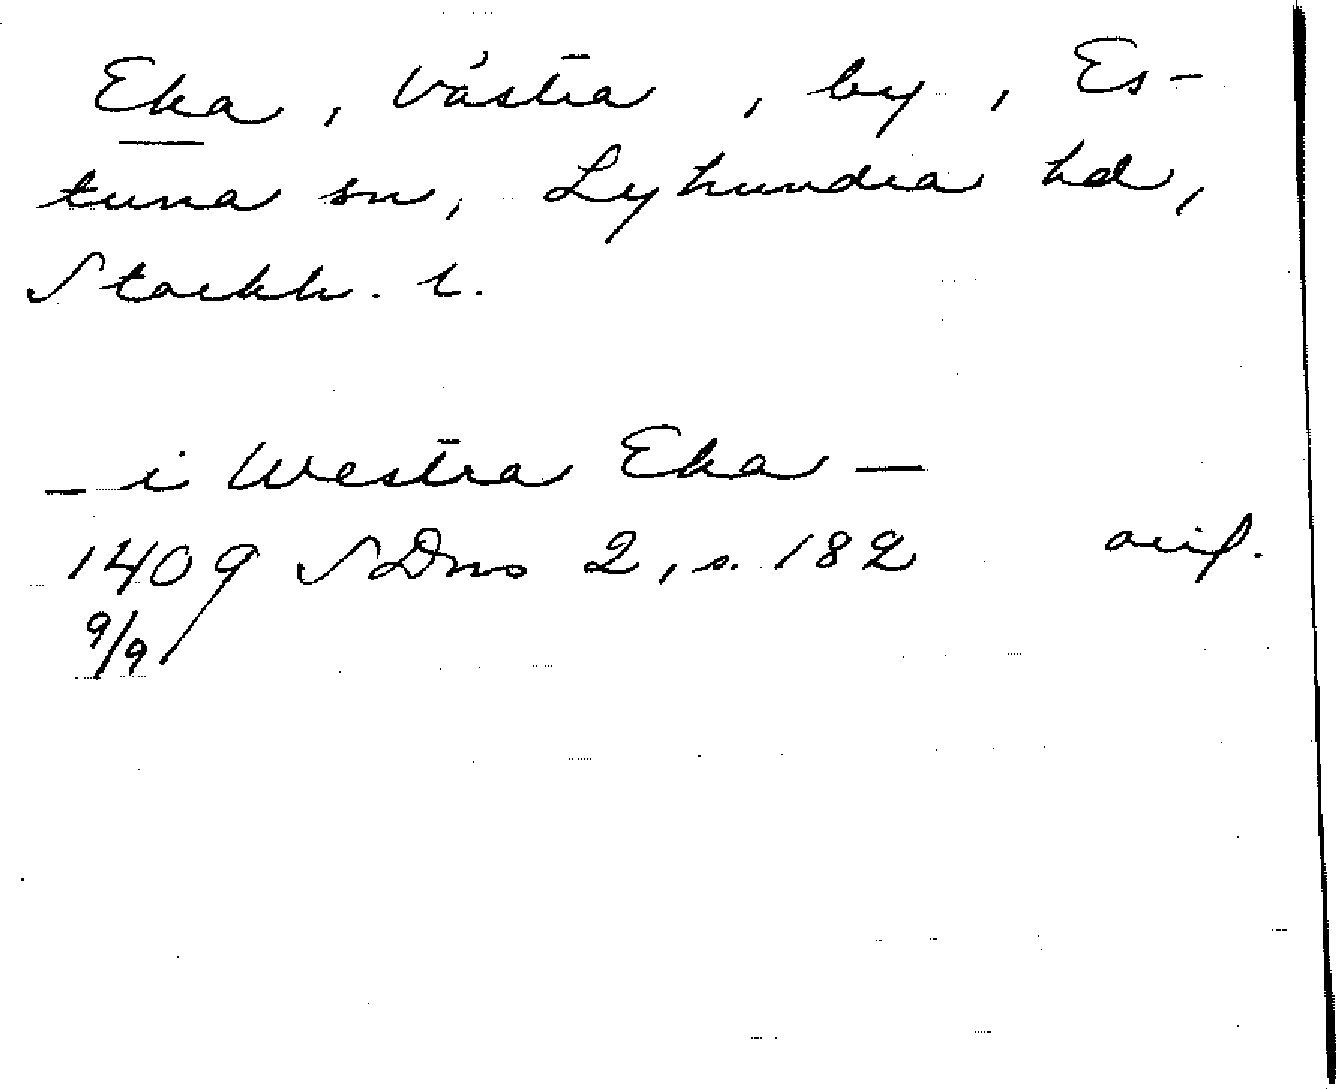 Eka, Västra, by, Es-
tuna sn, Lyhundra hd,
Stockh. l.
- i Westra Eka -
1409 SDns 2, s. 182 orig.
9/9